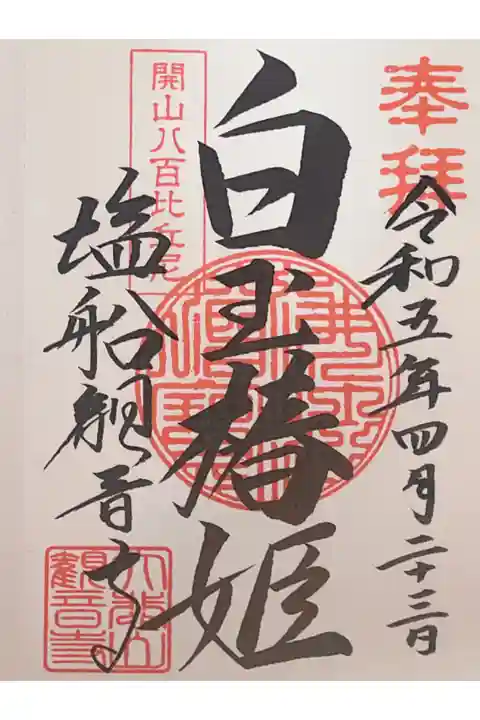 奉拝
令和五年四月二十三日
白玉椿姫
開山八百比丘尼
塩船観音寺
観音寺